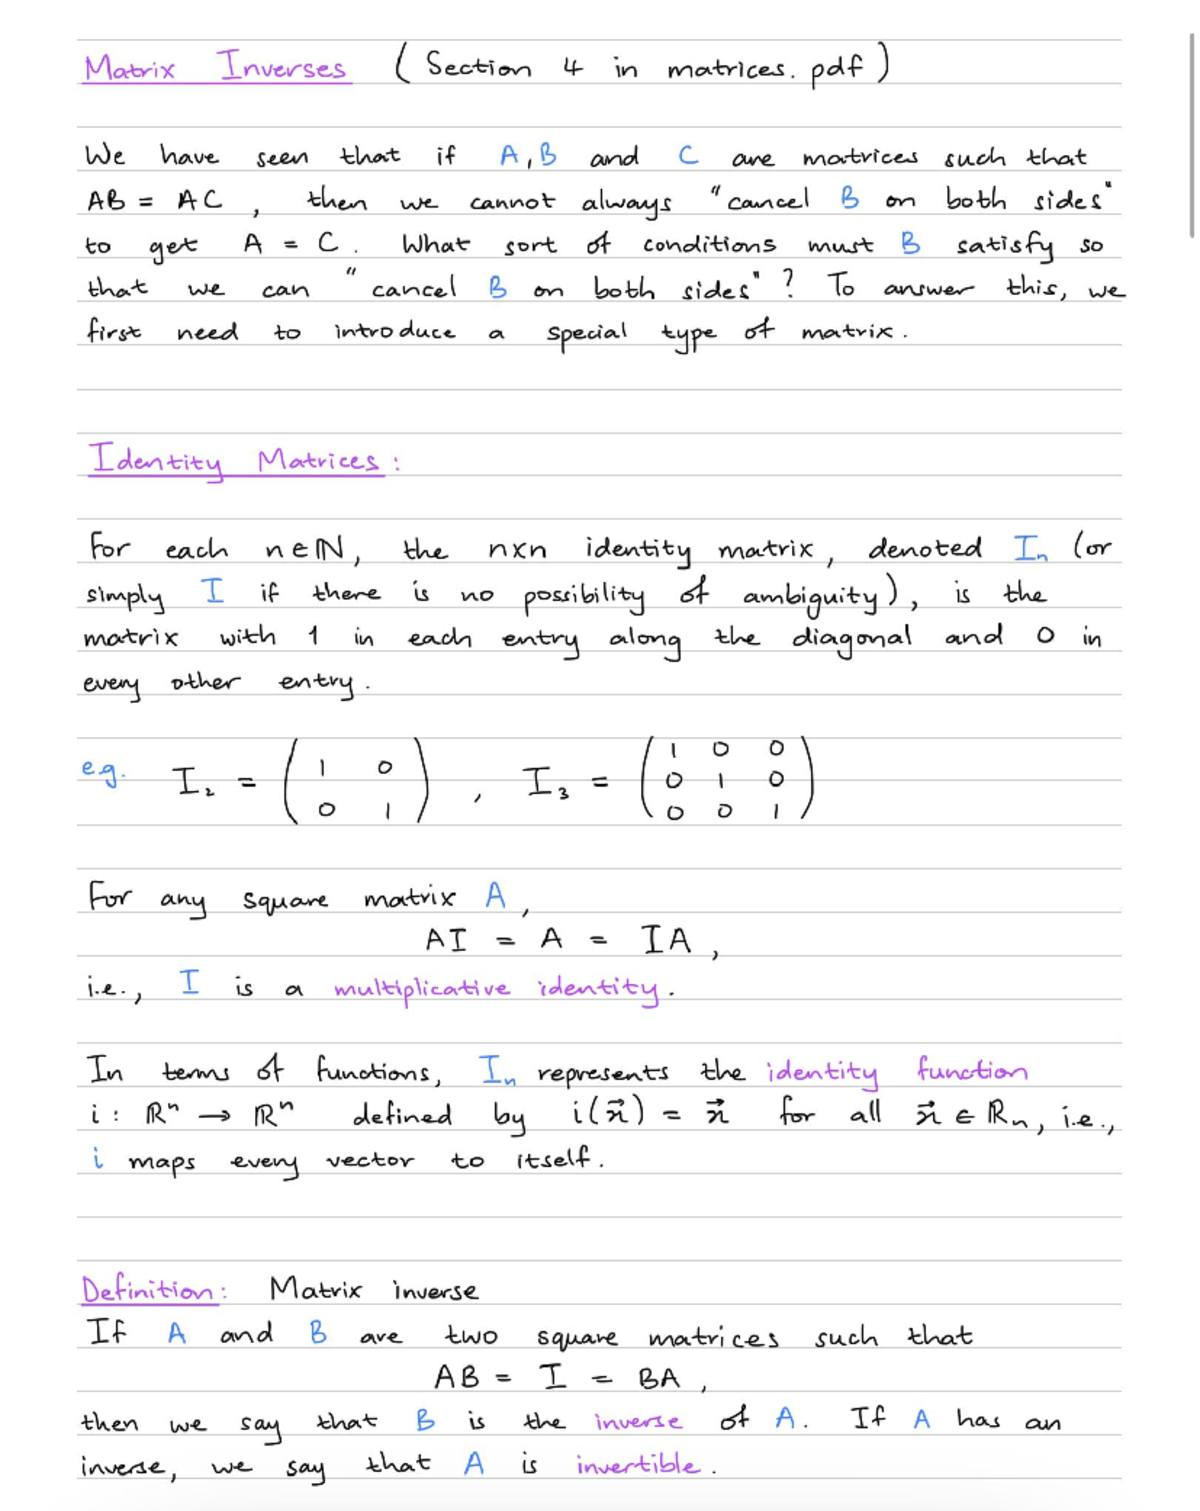 Matrix Inverses (Section 4 in matrices.pdf)
We have seen that if A, B and C are matrices such that
AB = AC, then we cannot always "cancel B on both sides"
to get A = C. What sort of conditions must B satisfy so
that we can "cancel B on both sides"? To answer this, we
first need to introduce a special type of matrix.
Identity Matrices:
For each n ∈ ℕ, the n×n identity matrix, denoted Iₙ (or
simply I if there is no possibility of ambiguity), is the
matrix with 1 in each entry along the diagonal and 0 in
every other entry.
e.g. I₂ = ( 1 0 ; 0 1 ), I₃ = ( 1 0 0 ; 0 1 0 ; 0 0 1 )
For any square matrix A,
AI = A = IA,
i.e., I is a multiplicative identity.
In terms of functions, Iₙ represents the identity function
i : ℝⁿ → ℝⁿ defined by i(x⃗) = x⃗ for all x⃗ ∈ ℝₙ, i.e.,
i maps every vector to itself.
Definition: Matrix inverse
If A and B are two square matrices such that
AB = I = BA,
then we say that B is the inverse of A. If A has an
inverse, we say that A is invertible.